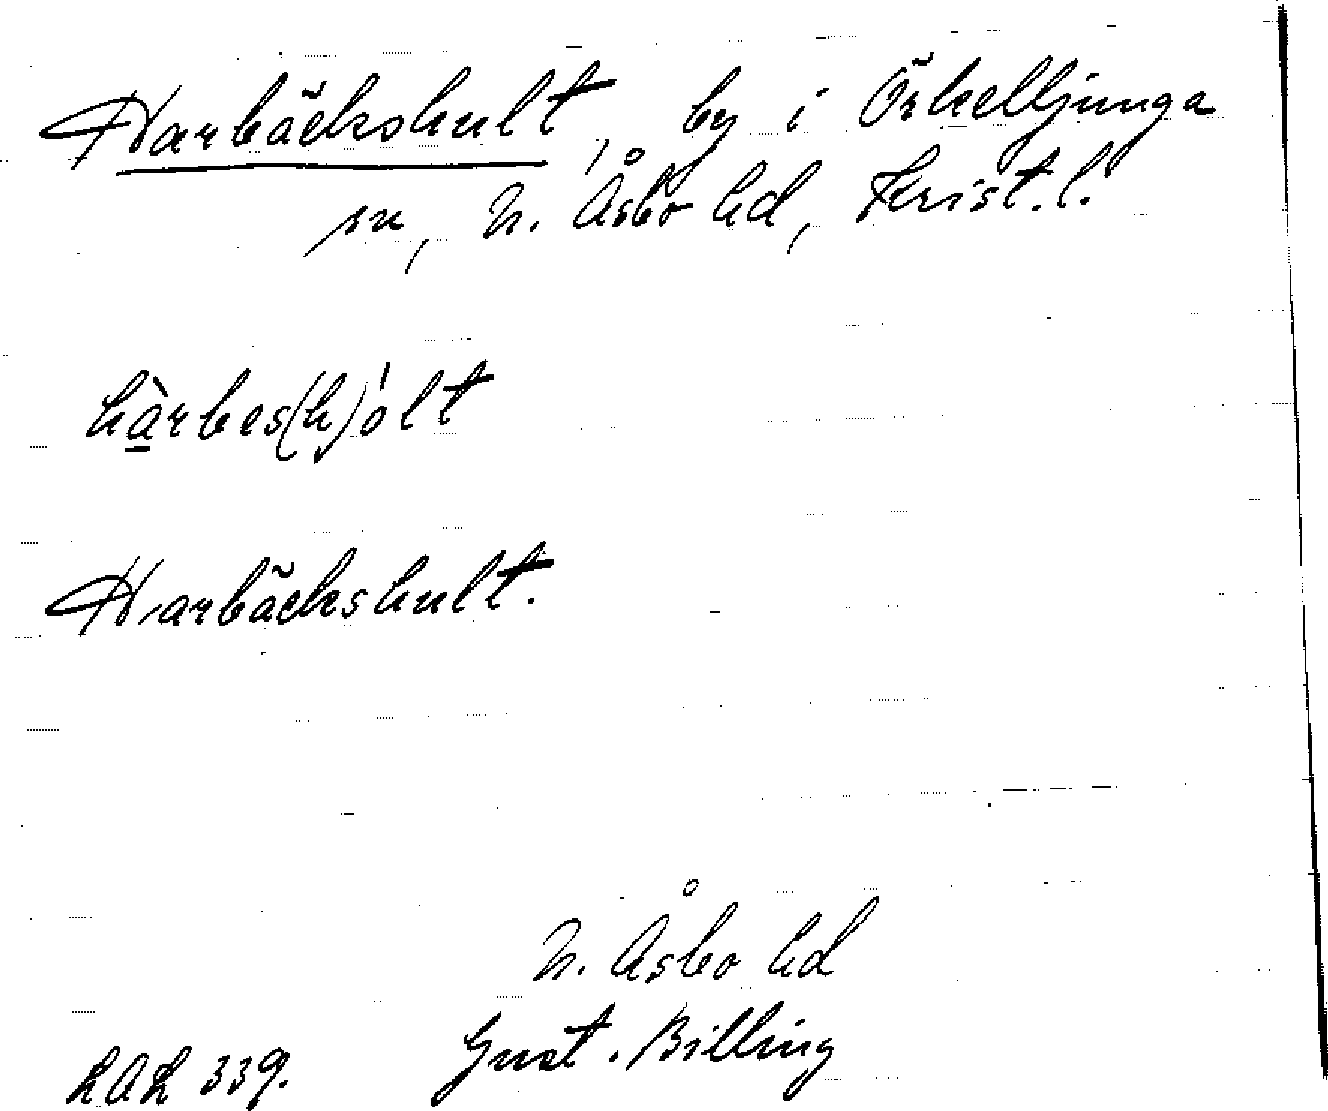 Harbäckshult, by i Örkelljunga
sn, N. Åsbo hd, Krist. l.
hàrbes(h)ólt
Harbäckshult.
N. Åsbo hd
LAL 339. Gust. Billing